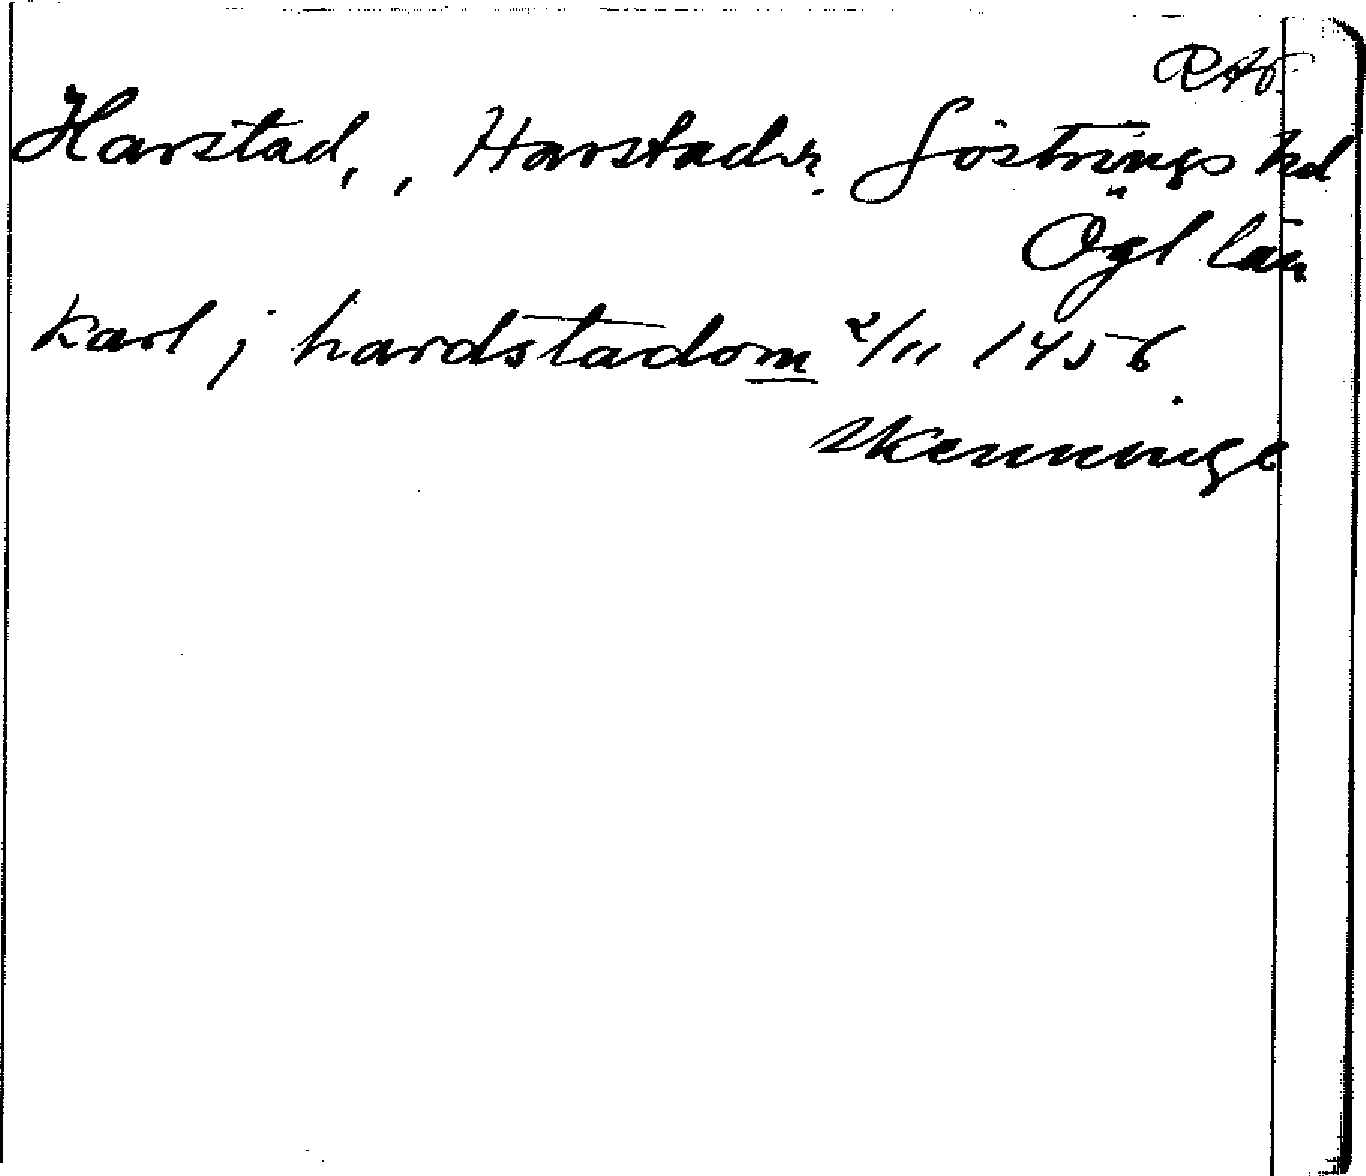 RAÖ
Harstad, , Harstads sn. Göstrings hd
Ögl län
karl j hardstadom 2/11 1456
skeninge